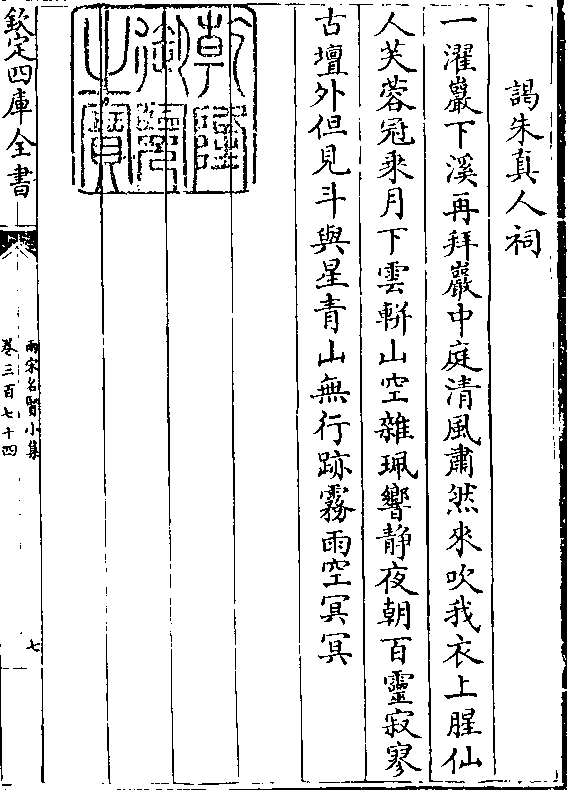 謁朱真人祠
一濯巖下溪再拜巖中庭清風肅然來吹我衣上腥仙
人芙蓉冠乘月下雲輧山空雜珮響静夜朝百靈寂寥
古壇外但見斗與星青山無行跡霧雨空冥冥
乾隆御覽之寶
欽定四庫全書
兩宋名賢小集
卷三百七十四
七